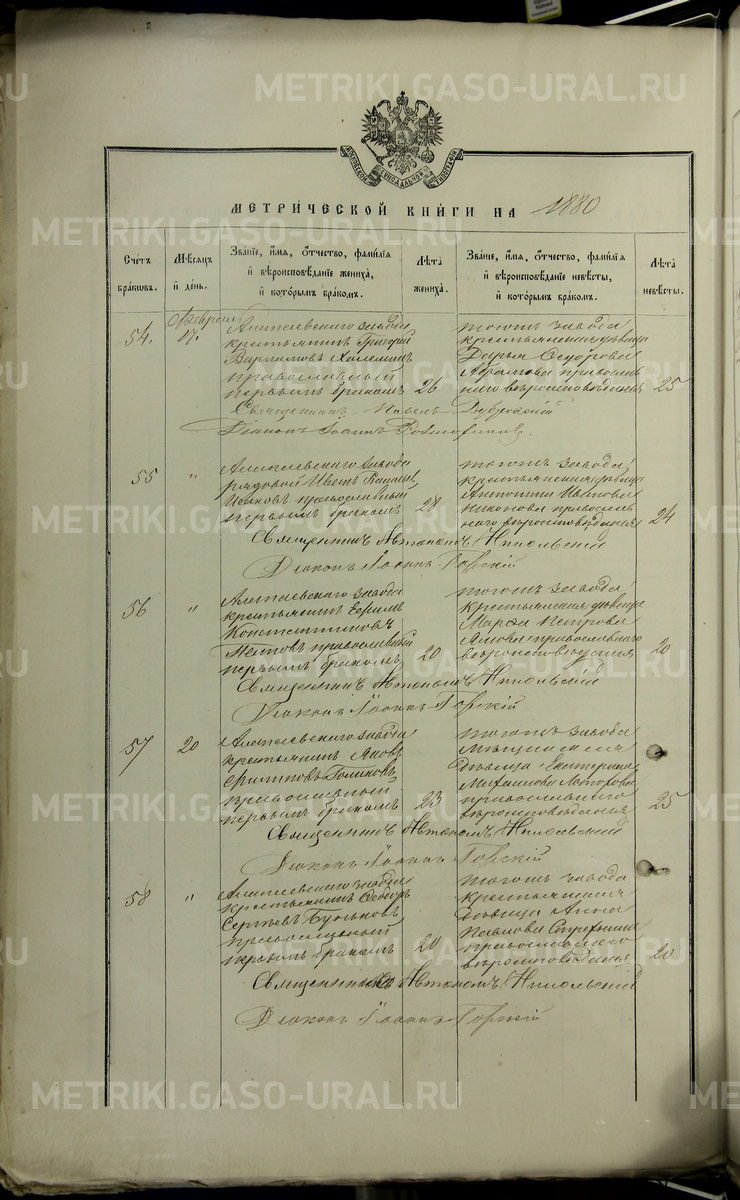 METRIKI.GASO-URAL.RU
МОСКОВСКОЙ СѴНОДАЛЬНОЙ ТИПОГРАФІИ
МЕТРИ́ЧЕСКОЙ КНИ́ГИ НА 1880
Сче́тъ бра́кωвъ.
Мѣ́сѧцъ и҆ де́нь.
Зва́нїе, и҆́мѧ, ѻ҆́тчество, фами́лїѧ и҆ вѣроисповѣ́данїе жениха̀, и҆ кото́рымъ бра́комъ.
Лѣ́та жениха̀.
Зва́нїе, и҆́мѧ, ѻ҆́тчество, фами́лїѧ и҆ вѣроисповѣ́данїе невѣ́сты, и҆ кото́рымъ бра́комъ.
Лѣ́та невѣ́сты.
54.
Февраль
17.
Алапаевскаго завода
крестьянинъ Григорій
Варламовъ
православный
первымъ бракомъ
26
тогожъ завода
крестьянская дѣвица
Дарья Ѳедорова
Абрамова православ
наго вѣроисповѣданія
25
Священникъ Павелъ Дубровскій
Діаконъ Іоаннъ
55
"
Алапаевскаго завода
рядовой
православный
первымъ бракомъ
28
тогожъ завода
крестьянская дѣвица
Антонина Иванова
Никонова православ
наго вѣроисповѣданія
24
Священникъ Автономъ Никольскій
Діаконъ Іоаннъ Горскій
56
"
Алапаевскаго завода
крестьянинъ
Константиновъ
православный
первымъ бракомъ
20
тогожъ завода
крестьянская дѣвица
Марѳа Петрова
православнаго
вѣроисповѣданія
20
Священникъ Автономъ Никольскій
Діаконъ Іоаннъ Горскій
57
20
Алапаевскаго завода
крестьянинъ Яковъ
Голиковъ
православный
первымъ бракомъ
23
тогожъ завода
мѣщанская
дѣвица Екатерина
Михаилова
православнаго
вѣроисповѣданія
25
Священникъ Автономъ Никольскій
Діаконъ Іоаннъ Горскій
58
"
Алапаевскаго завода
крестьянинъ Ѳедоръ
Сергѣевъ Буньковъ
православный
первымъ бракомъ
20
тогожъ завода
крестьянская
дѣвица Анна
Павлова
православнаго
вѣроисповѣданія
20
Священникъ Автономъ Никольскій
Діаконъ Іоаннъ Горскій